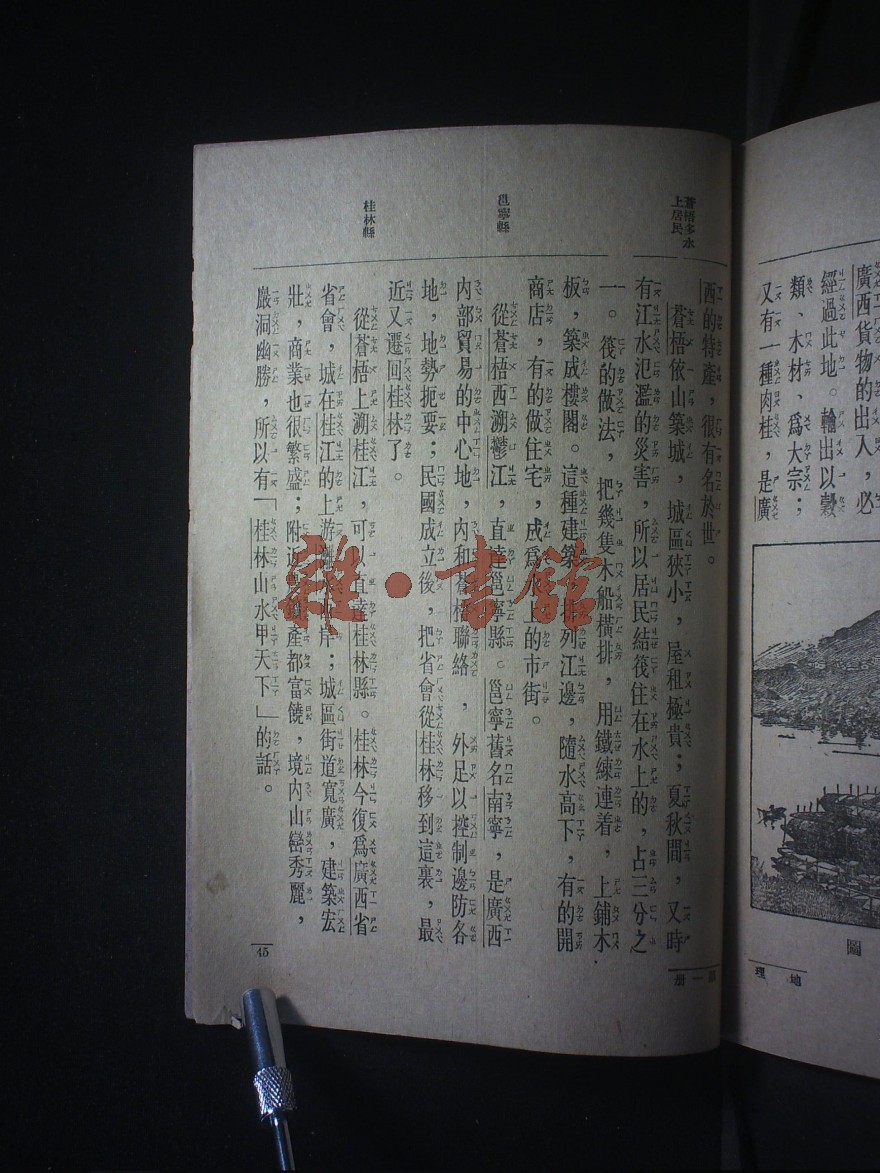 廣西貨物的出入，必
經過此地。輸出以穀
類、木材、爲大宗；
又有一種肉桂，是廣
圖
地理
蒼梧多水
上居民
邕寧縣
桂林縣
西的特產，很有名於世。
蒼梧依山築城，城區狹小，屋租極貴；夏秋間，又時
有江水氾濫的災害，所以居民結筏住在水上的，占三分之
一。筏的做法，把幾隻木船橫排，用鐵練連着，上鋪木
板，築成樓閣。這種建築，排列江邊，隨水高下，有的開
商店，有的做住宅，成爲水上的市街。
從蒼梧西溯鬱江，直達邕寧縣。邕寧舊名南寧，是廣西
內部貿易的中心地，內和蒼梧聯絡，外足以控制邊防各
地，地勢扼要；民國成立後，把省會從桂林移到這裏，最
近又遷回桂林了。
從蒼梧上溯桂江，可以直達桂林縣。桂林今復爲廣西省
省會，城在桂江的上游灕水岸；城區街道寬廣，建築宏
壯，商業也很繁盛；附近產都富饒，境內山巒秀麗，
巖洞幽勝，所以有「桂林山水甲天下」的話。
一册
45
雜·書館